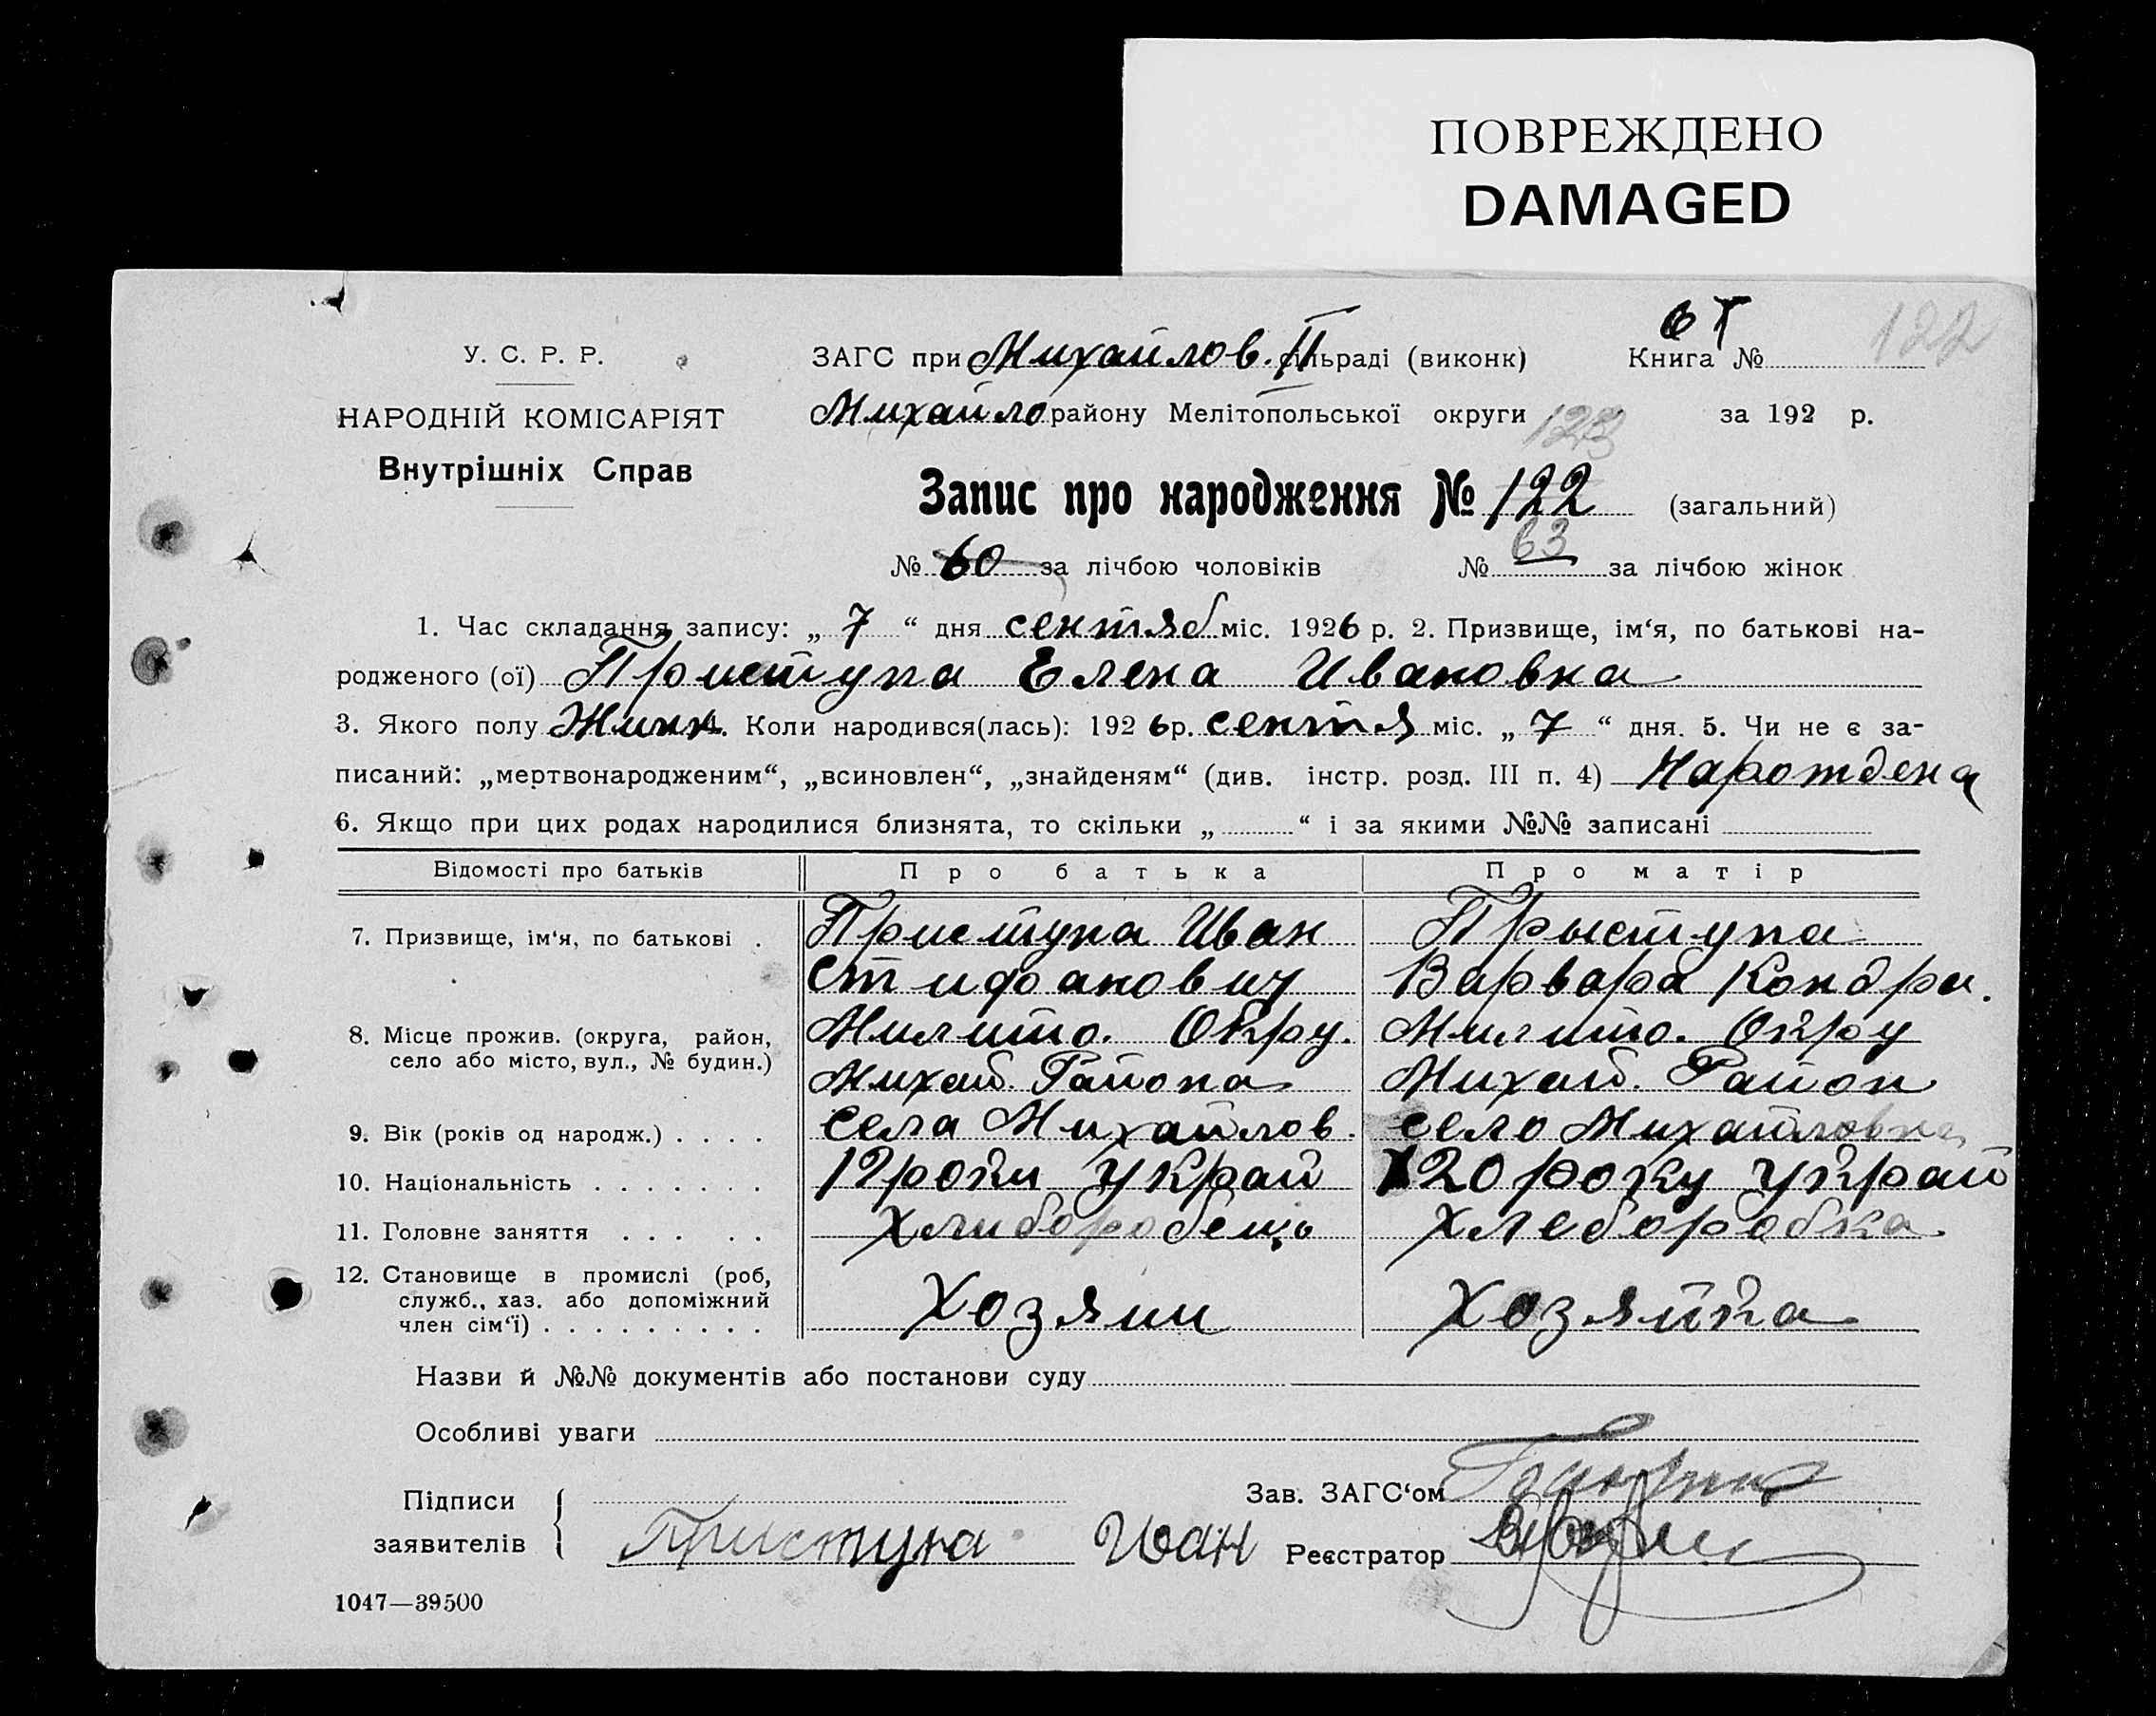 ПОВРЕЖДЕНО
DAMAGED
У. С. Р. Р.
НАРОДНІЙ КОМІСАРІЯТ
Внутрішніх Справ
ЗАГС при Михайлов. II сільраді (виконк)
Книга №
122
Михайло району Мелітопольської округи
123
за 192 р.
Запис про народження № 122 (загальний)
№ 60 за лічбою чоловіків № 63 за лічбою жінок
1. Час складання запису: „ 7 “ дня сентяб міс. 1926 р. 2. Призвище, ім‘я, по батькові на-
родженого (ої) Приступа Елена Ивановна
3. Якого полу Жинк. 4. Коли народився(лась): 192 6 р. сентя міс. „ 7 “ дня. 5. Чи не є за-
писаний: „мертвонародженим“, „всиновлен“, „знайденям“ (див. інстр. розд. III п. 4) Нарождена
6. Якщо при цих родах народилися близнята, то скільки „ “ і за якими №№ записані
Відомості про батьків Про батька Про матір
7. Призвище, ім‘я, по батькові . Приступа Иван Прыступа
Стифанович Варвара Кондра.
8. Місце прожив. (округа, район, Милито. Окру. Милито. Окру
село або місто, вул., № будин.) Михай. Района Михай. Район
9. Вік (років од народж.) . . . . села Михайлов. село Михайловка
10. Національність . . . . . . . роки Украй 20 року Украй
11. Головне заняття . . . . . Хлиборобець Хлеборобка
12. Становище в промислі (роб,
служб., хаз. або допоміжний Хозяин Хозяйка
член сім‘ї) . . . . . . . . .
Назви й №№ документів або постанови суду
Особливі уваги
Підписи
заявителів
Приступа Иван
Зав. ЗАГС‘ом
Реєстратор
1047—39500